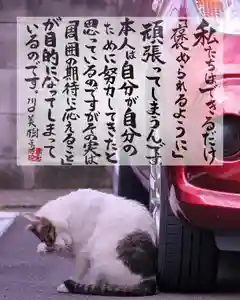 私たちはできるだけ
「褒められるように」
頑張ってしまうんです
本人は自分が自分の
ために努力してきたと
思っているのですがその実は
「周囲の期待に応えること」
が目的になってしまって
いるのです。川口美樹